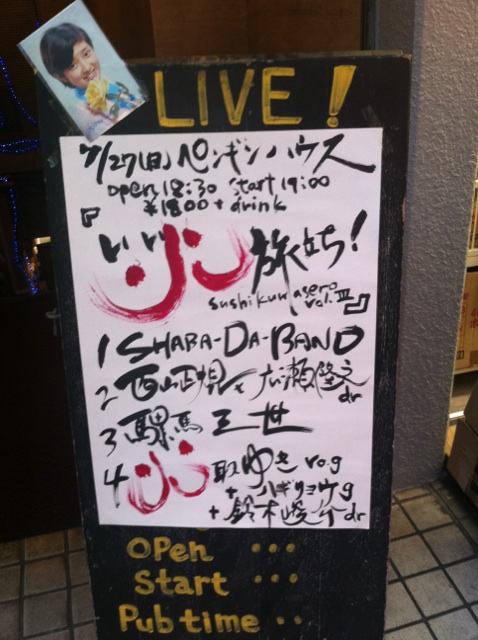 LIVE!
7/27(日)ペンギンハウス
open 18:30 start 19:00
¥1800+drink
『いい 旅立ち!
sushikuwasero
vol.Ⅲ』
1 SHABA-DA-BAND
2 西山正規と広瀬隆之 dr
3 騾馬三世
4 取ゆき vo.g
+ハギリョウ g
+鈴木峻介 dr
Open ...
Start ...
Pub time ..